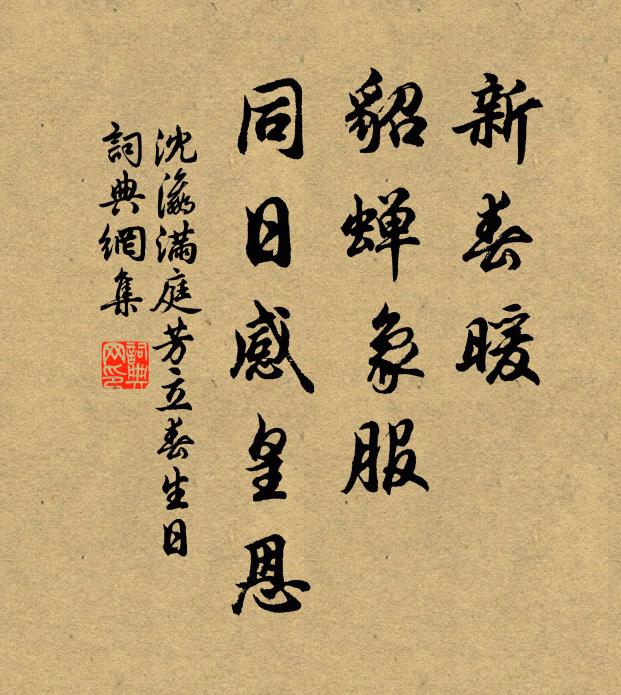 新春暖
貂蝉象服
同日感皇恩
沈瀛滿庭芳立春生日
詞典網集
詞典网印